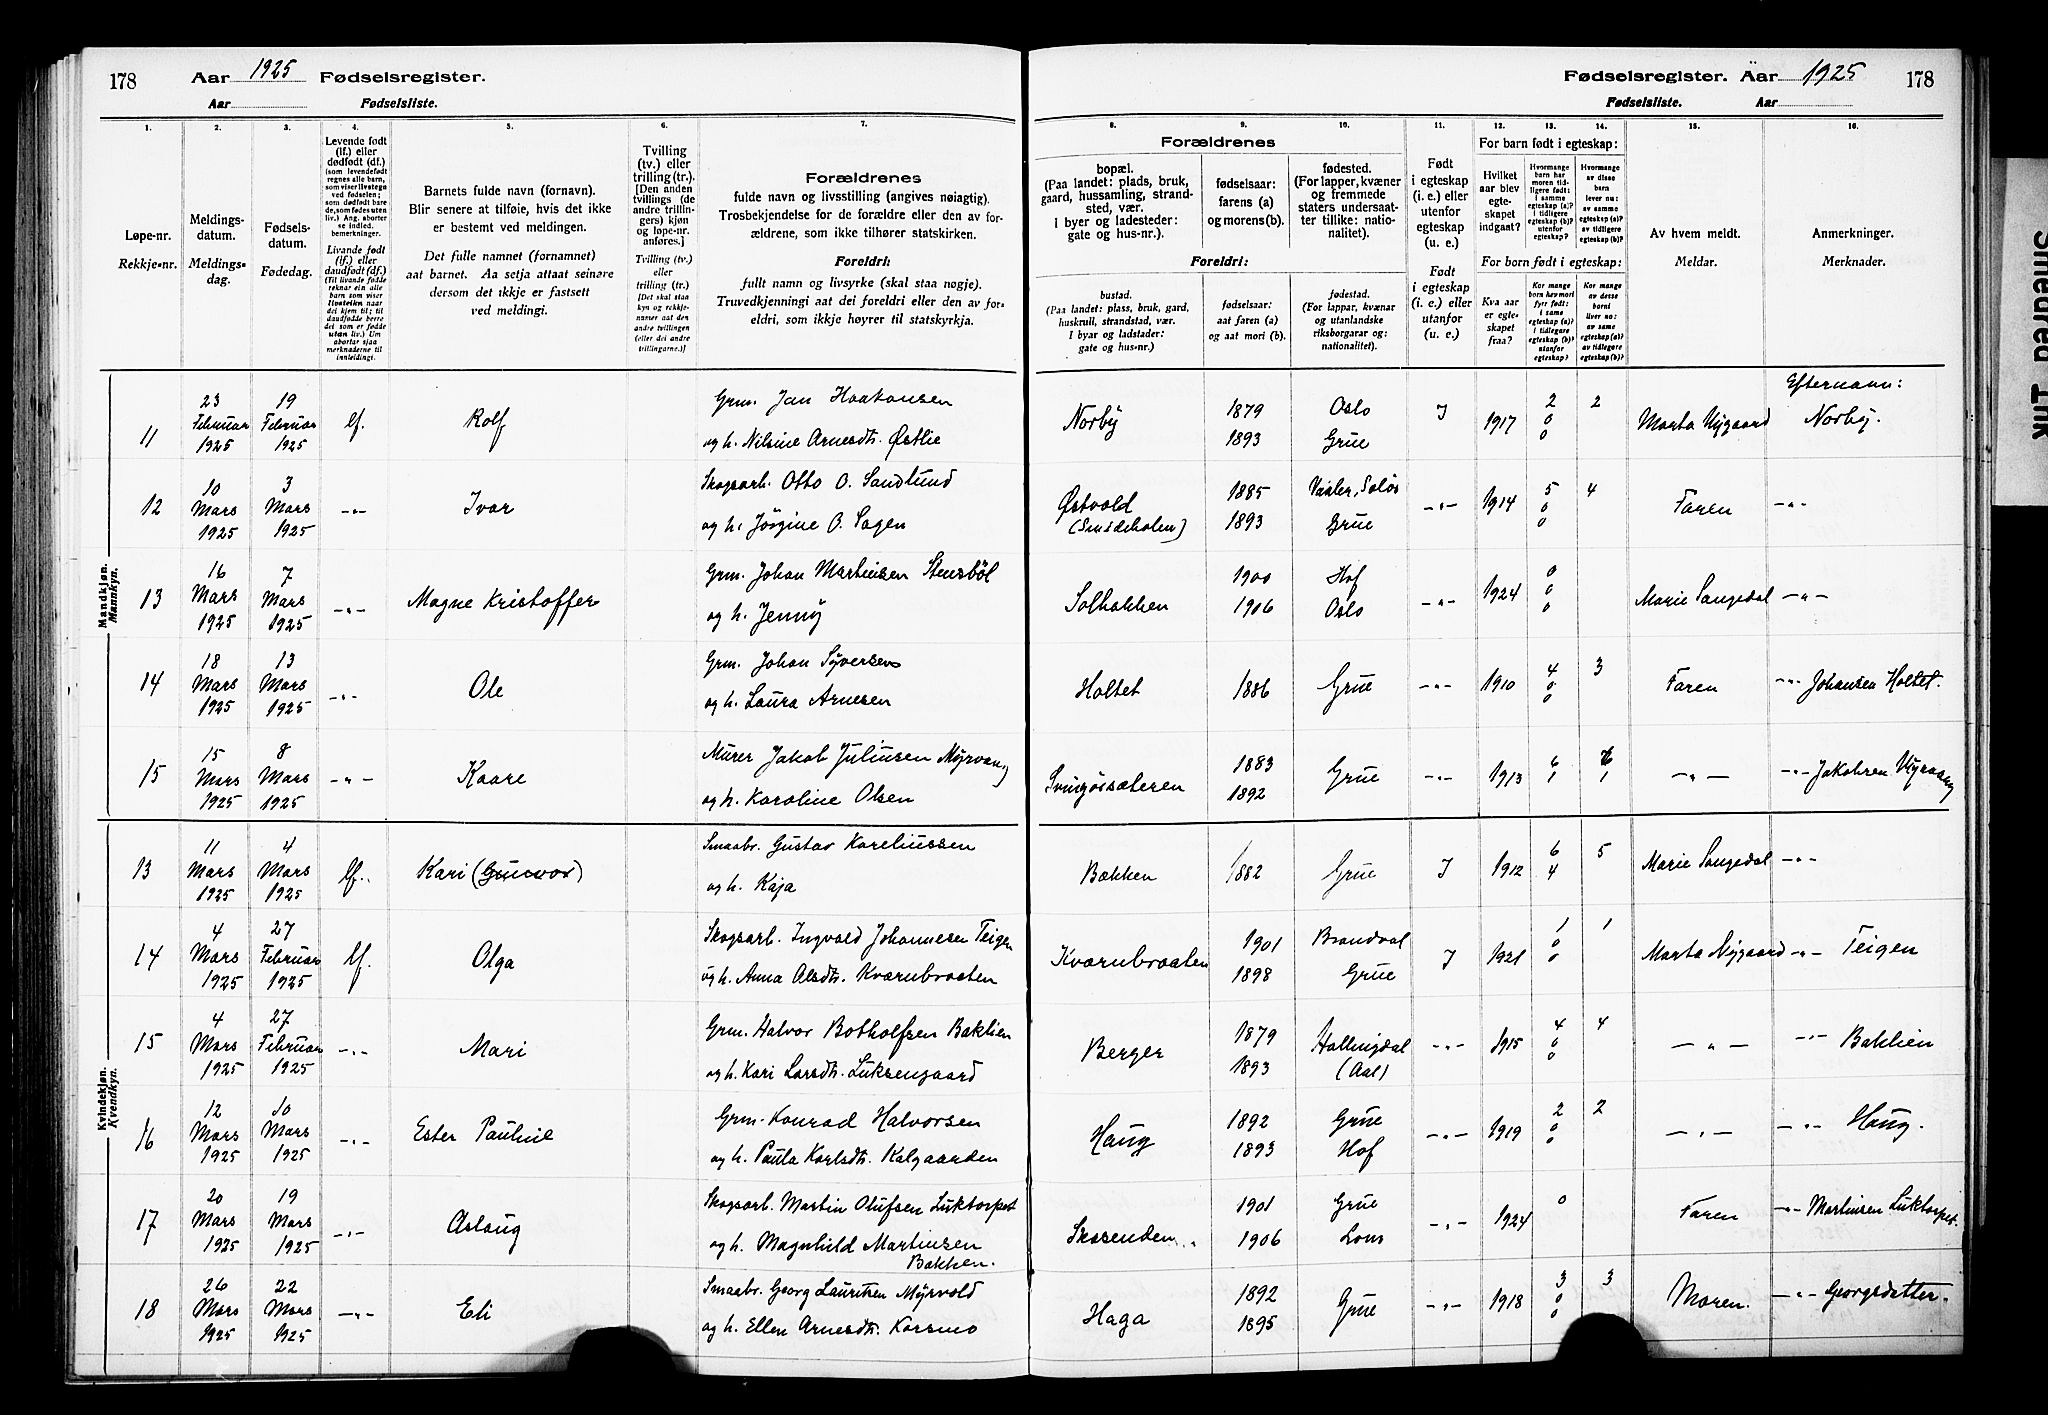 178 Aar 1925 Fødselsregister.
Aar Fødselsliste.
Fødselsregister. Aar 1925 178
Fødselsliste. Aar
1. 2. 3. 4. 5. 6. 7. 8. 9. 10. 11. 12. 13. 14. 15. 16.
Løpe-nr.
Rekkje-nr.
Meldings-
datum.
Meldings-
dag.
Fødsels-
datum.
Fødedag.
Levende født
(lf.) eller
dødfødt (df.)
(som levendefødt
regnes alle barn,
som viser livstegn
ved fødselen;
som dødfødt bare
de, som fødes uten
liv.) Ang. aborter
se indled.
bemerkninger.
Livande født
(lf.) eller
daudfødt (df.)
(Til livande fødde
reknar ein alle
barn som viser
livsteikn naar
dei kjem til; til
daudfødde berre
dei som er fødde
utan liv.) Um
abortar sjaa
merknaderne til
innleidingi.
Barnets fulde navn (fornavn).
Blir senere at tilføie, hvis det ikke
er bestemt ved meldingen.
Det fulle namnet (fornamnet)
aat barnet. Aa setja attaat seinare
dersom det ikkje er fastsett
ved meldingi.
Tvilling
(tv.) eller
trilling (tr.).
[Den anden
tvillings (de
andre trillin-
gers) kjøn
og løpe-nr.
anføres.]
Tvilling (tv.)
eller
trilling (tr.)
[Det skal staa
kyn og rekkje-
numer aat den
andre tvillingen
(eller dei andre
trillingarne.)]
Forældrenes
fulde navn og livsstilling (angives nøiagtig).
Trosbekjendelse for de forældre eller den av for-
ældrene, som ikke tilhører statskirken.
Foreldri:
fullt namn og livsyrke (skal staa nøgje).
Truvedkjenningi aat dei foreldri eller den av for-
eldri, som ikkje høyrer til statskyrkja.
Forældrenes
bopæl.
(Paa landet: plads, bruk,
gaard, hussamling, strand-
sted, vær.
I byer og ladesteder:
gate og hus-nr.).
fødselsaar:
farens (a)
og morens (b).
fødested.
(For lapper, kvæner
og fremmede
staters undersaat-
ter tillike: natio-
nalitet).
Foreldri:
bustad.
(Paa landet: plass, bruk, gard,
huskrull, strandstad, vær.
I byar og ladstader:
gate og hus-nr.)
fødselsaar:
aat faren (a)
og aat mori (b).
fødestad.
(For lappar, kvænar
og utanlandske
riksborgarar og:
nationalitet).
Født
i egteskap
(i. e.) eller
utenfor
egteskap
(u. e.)
Født
i egteskap
(i. e.) eller
utanfor
(u. e.)
For barn født i egteskap:
Hvilket
aar blev
egte-
skapet
indgaat?
Hvormange
barn har
moren tid-
ligere født:
i samme
egteskap (a)?
i tidligere
egteskap (b)?
utenfor
egteskap?
Hvormange
av disse
barn
lever nu:
av samme
egteskap (a)?
av tidligere
egteskap (b)?
For born født i egteskap:
Kva aar
er egte-
skapet
fraa?
Kor mange
born hev mori
fyrr født:
i same
egteskap (a)?
i tidlegare
egteskap (b)?
utanfor
egteskap?
Kor mange
av desse
borni
liver no:
av same
egteskap (a)?
av tidlegare
egteskap (b)?
Av hvem meldt.
Meldar.
Anmerkninger.
Merknader.
Mandkjøn.
Mannkyn.
11 23 Februar 1925 19 Februar 1925 lf. Rolf Grm. Jan Haakansen
og h. Nilsine Arnesdtr. Østlie Norby 1879 1893 Oslo Grue J 1917 2 0 0 2 Marta Nygaard Efternavn: Norby.
12 10 Mars 1925 3 Mars 1925 -"- Ivar Skogsarb. Otto O. Sandlund
og h. Jörgine O. Sagen Østvold 1885 1893 Vaaler, Solør Grue -"- 1914 5 0 0 4 Faren -"-
13 16 Mars 1925 7 Mars 1925 -"- Magne Kristoffer Grm. Johan Martinsen Stensböl
og h. Jenny Solbakken 1900 1906 Hof Oslo -"- 1924 0 0 0 Marie Sangedal -"-
14 18 Mars 1925 13 Mars 1925 -"- Ole Grm. Johan Syversen
og h. Laura Arnesen Holtet 1886 Grue -"- 1910 4 0 0 3 Faren -"- Johansen Holtet.
15 15 Mars 1925 8 Mars 1925 -"- Kaare Murer Jakob Juliusen Myrvang
og h. Karoline Olsen 1883 1892 Grue -"- 1913 6 1 1 -"- -"- Jakobsen Myrvang
Kvindekjøn.
Kvendkyn.
13 11 Mars 1925 4 Mars 1925 lf. Kari (Gunvor) Smaabr. Gustav Kareliussen
og h. Kaja Bakken 1882 Grue J 1912 6 4 5 Marie Sangedal -"-
14 4 Mars 1925 27 Februar 1925 lf. Olga Skogsarb. Ingvald Johannesen Teigen
og h. Anna Olsdtr. Kvernbraaten Kvernbraaten 1901 1898 Brandval Grue J 1921 1 0 0 1 Marta Nygaard -"- Teigen
15 4 Mars 1925 27 Februar 1925 -"- Mari Grm. Halvor Botholfsen Baklien
og h. Kari Larsdtr. Luksengaard Berger 1879 1893 Hallingdal (Aal) -"- 1915 4 0 0 4 -"- -"- Baklien
16 12 Mars 1925 10 Mars 1925 -"- Ester Pauline Grm. Konrad Halvorsen
og h. Paula Karlsdtr. Kalgaarden Haug 1892 1893 Grue Hof -"- 1919 2 0 0 2 -"- -"- Haug.
17 20 Mars 1925 19 Mars 1925 -"- Aslaug Skogsarb. Martin Olufsen Luktorpet
og h. Magnhild Martinsen
Bakken. Skasenden 1901 1906 Grue Lom -"- 1924 0 Faren -"- Martinsen Luktorpet.
18 26 Mars 1925 22 Mars 1925 -"- Eli Smaabr. Georg Lauritsen Myrvold
og h. Ellen Arnesdtr. Korsmo Haga 1892 1895 Grue -"- 1918 3 0 0 3 Moren. -"- Georgsdatter.